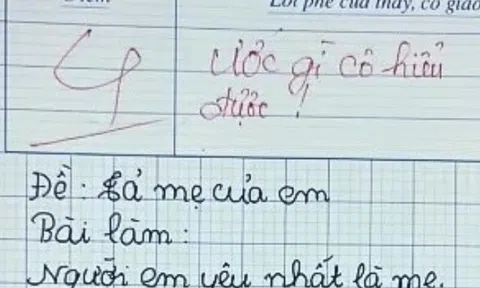 Điểm Lời phê của thầy, cô giáo
4 Ước gì cô hiểu
được !
Đề : Tả mẹ của em
Bài làm :
Người em yêu nhất là mẹ.